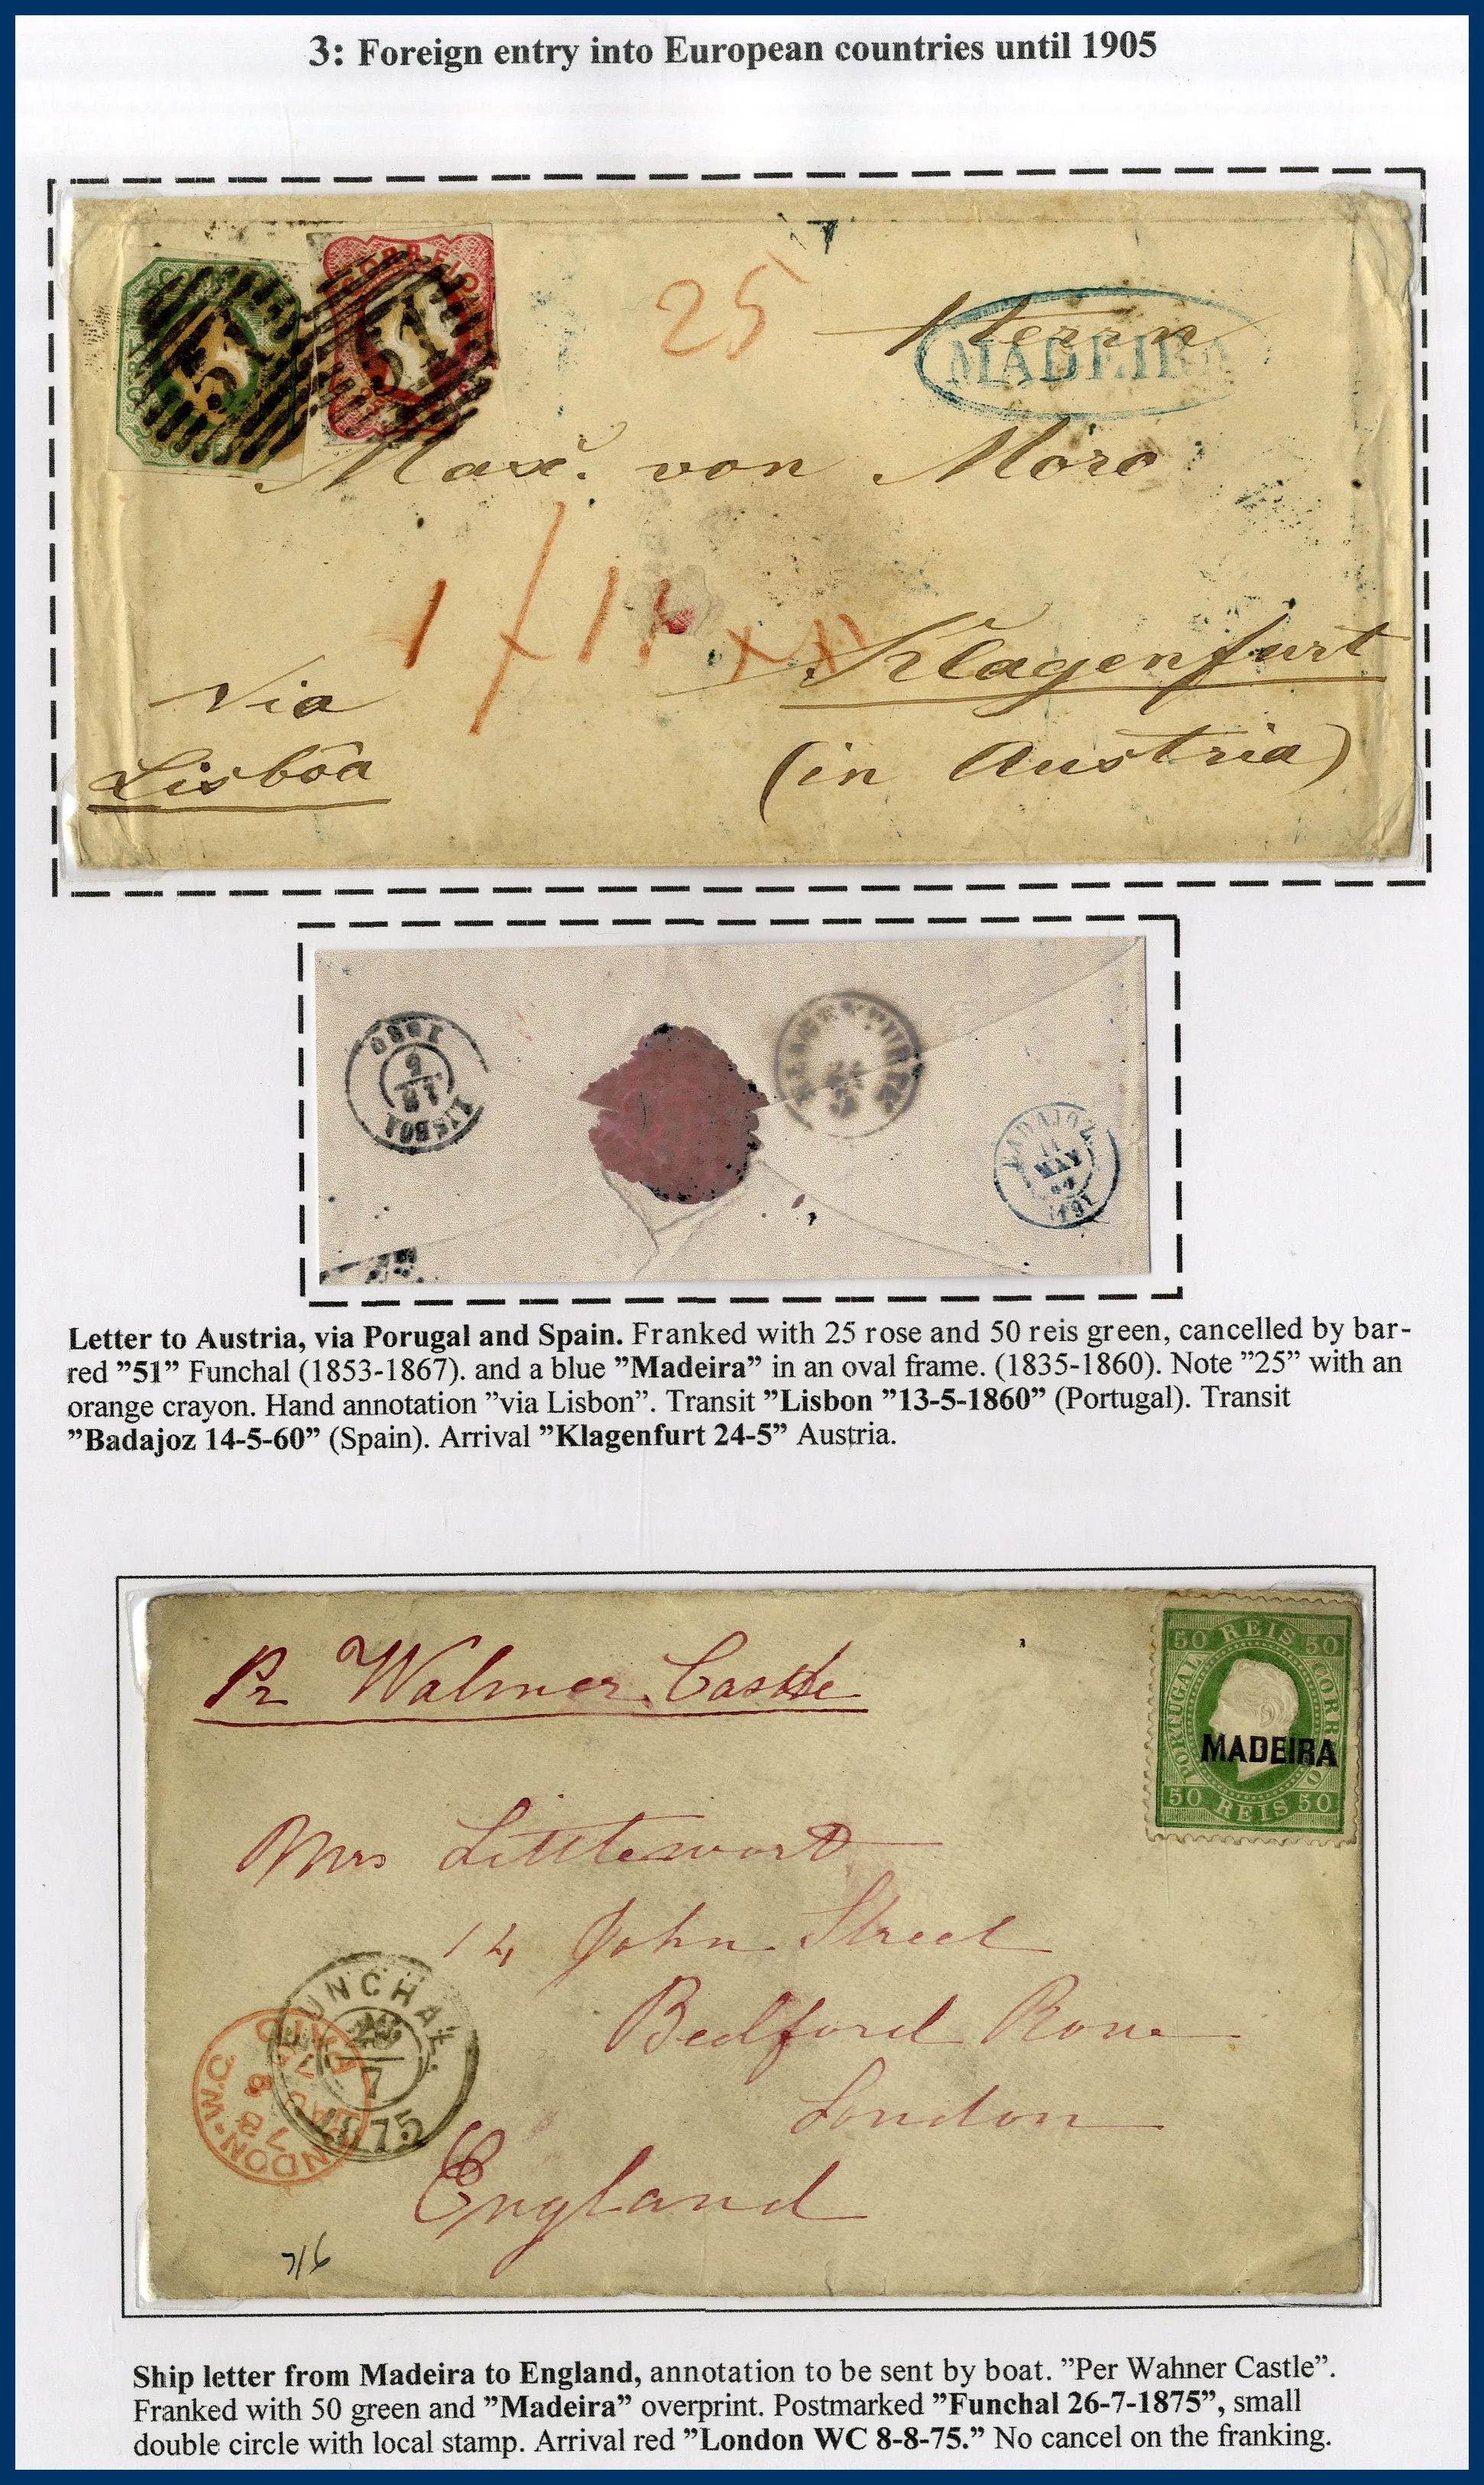 3: Foreign entry into European countries until 1905
CORREIO
51
51
25
Herrn
MADEIRA
Max. von Moro
Klagenfurt
Via
Lisbôa
(in Austria)
1860
LISBOA
KLAGENFURT
BADAJOZ
14
MAY
Letter to Austria, via Porugal and Spain. Franked with 25 rose and 50 reis green, cancelled by bar-
red ”51” Funchal (1853-1867). and a blue ”Madeira” in an oval frame. (1835-1860). Note ”25” with an
orange crayon. Hand annotation ”via Lisbon”. Transit ”Lisbon ”13-5-1860” (Portugal). Transit
”Badajoz 14-5-60” (Spain). Arrival ”Klagenfurt 24-5” Austria.
Pr Walmer Castle
50 REIS 50
PORTUGAL CORREIO
MADEIRA
50 REIS 50
Mrs Littlewort
14 John Street
Bedford Row
London
England
FUNCHAL
7
1875
LONDON·W.C
PAID
716
Ship letter from Madeira to England, annotation to be sent by boat. ”Per Wahner Castle”.
Franked with 50 green and ”Madeira” overprint. Postmarked ”Funchal 26-7-1875”, small
double circle with local stamp. Arrival red ”London WC 8-8-75.” No cancel on the franking.